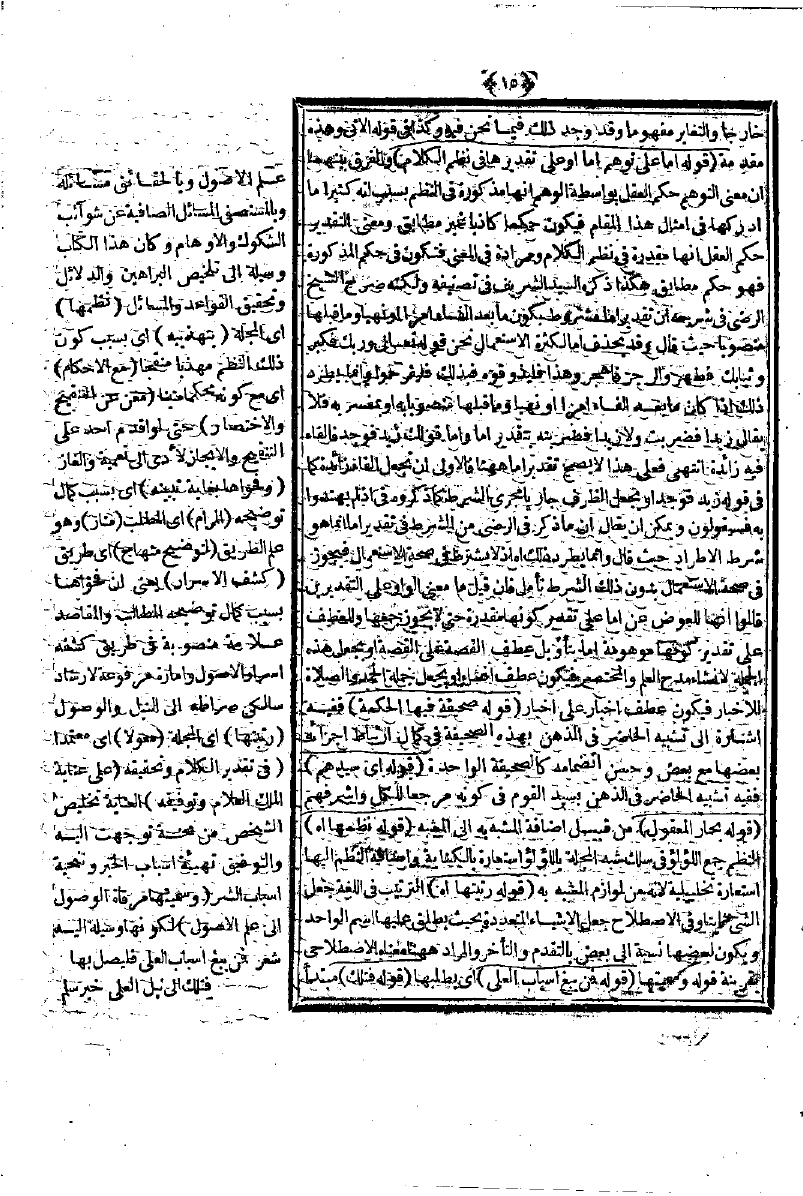 ﴿١٥﴾
خارجا والتغاير مفهوما وقد وجد ذلك فيما نحن فيه وكذا في قوله الآتي وهذه
مقدمة (قوله اما على توهم اما او على تقدير هافى نظم الكلام) والفرق بينهما
ان معنى التوهم حكم العقل بواسطة الوهم انها مذكورة فى النظم بسبب انه كثيرا ما
ادركها فى امثال هذا المقام فيكون حكمها كاذبا غير مطابق ومعنى التقدير
حكم العقل انها مقدرة فى نظم الكلام ومرادة فى المعنى فتكون فى حكم المذكورة
فهو حكم مطابق هكذا ذكره السيد الشريف فى تصنيفه ولكنه صرح الشيخ
الرضى فى شرحه ان تقدير اما مشروط بكون ما بعد الفاء امرا او نهيا وما قبلها
منصوبا حيث قال وقد يحذف اما لكثرة الاستعمال نحو قوله تعالى وربك فكبر
وثيابك فطهر والرجز فاهجر وهذا فليذوقوه فبذلك فليفرحوا وانما يطرد
ذلك اذا كان ما بعد الفاء امرا او نهيا وما قبلها منصوبا به او بمفسر به فلا
يقال زيدا فضربت ولا زيدا فضربته بتقدير اما واما قولك زيد فوجد فالفاء
فيه زائدة انتهى فعلى هذا لا يصح تقدير اما ههنا فالاولى ان تجعل الفاء زائدة كما
فى قوله زيد فوجد او يجعل الظرف جاريا مجرى الشرط كما ذكروه فى اذ لم يهتدوا
به فسيقولون ويمكن ان يقال ان ما ذكر فى الرضى من الشرط فى تقدير اما انما هو
شرط الاطراد حيث قال وانما يطرد ذلك اما لاشترط فى صحة الاستعمال فيجوز
فى صحة الاستعمال بدون ذلك الشرط تأمل فان قيل ما معنى الواو على التقديرين
قالوا انها للعوض عن اما على تقدير كونها مقدرة حتى لا يجوز جمعها وللعطف
على تقدير كونها موهومة اما بتأويل عطف القصة على القصة او يجعل هذه
الجملة لانشاء مدح العلم والمختصر فيكون عطف انشاء او يجعل جملة الحمد والصلاة
للاخبار فيكون عطف اخبار على اخبار (قوله صحيفة فيها الحكمة) ففيه
اشارة الى تشبيه الحاضر فى الذهن بهذه الصحيفة فى كمال ارتباط اجزائه
بعضها مع بعض وحسن انضمامه كالصحيفة الواحدة (قوله اى سيدهم)
ففيه تشبيه الحاضر فى الذهن بسيد القوم فى كونه مرجعا للكل واشرفهم
(قوله بحار المعقول) من قبيل اضافة المشبه به الى المشبه (قوله نظمها اه)
النظم جمع اللؤلؤ فى سلك شبه المجلة باللؤلؤ استعارة بالكناية واضافة النظم اليها
استعارة تخييلية لانه من لوازم المشبه به (قوله رتبتها اه) الترتيب فى اللغة جعل
الشئ وفى الاصطلاح جعل الاشياء المتعددة بحيث يطلق عليها اسم الواحد
ويكون لبعضها نسبة الى بعض بالتقدم والتأخر والمراد ههنا معناه الاصطلاحى
بقرينة قوله وسميتها (قوله فمن يبغ اسباب العلى) اى يطلبها (قوله فتلك) مبتدأ
علم الاصول وبالحقائق مسائله
وبالمستصفى المسائل الصافية عن شوائب
الشكوك والاوهام وكان هذا الكتاب
وسيلة الى تلخيص البراهين والدلائل
وتحقيق القواعد والمسائل (نظمها)
اى المجلة (بتهذيبه) اى بسبب كون
ذلك النظم مهذبا منقحا (مع الاحكام)
اى مع كونه محكما متينا (فمن عن التنقيح
والاختصار) حتى لو اقدم احد على
التنقيح والايجاز لأدى الى تعمية والغاز
(وفحواها بغاية تبيينه) اى بسبب كمال
توضيحه (المرام) اى المطالب (منار) وهو
علم الطريق (لتوضيح منهاج) اى طريق
(كشف الاسرار) يعنى ان فحواها
بسبب كمال توضيحه المطالب والمقاصد
علامة منصوبة فى طريق كشفه
اسرار الاصول وامارة مرفوعة لارشاد
سالكى صراطه الى النيل والوصول
(رتبتها) اى المجلة (معولا) اى معتمدا
(فى تقدير الكلام وتحقيقه (على عناية
الملك العلام وتوفيقه) العناية تخليص
الشخص من محنة توجهت اليه
والتوفيق تهيئة اسباب الخير وتنحية
اسباب الشر (وسميتها مرقاة الوصول
الى علم الاصول) لكونها وسيلة اليه
شعر فمن يبغ اسباب العلى فليصل بها
فتلك الى نيل العلى خير سلم